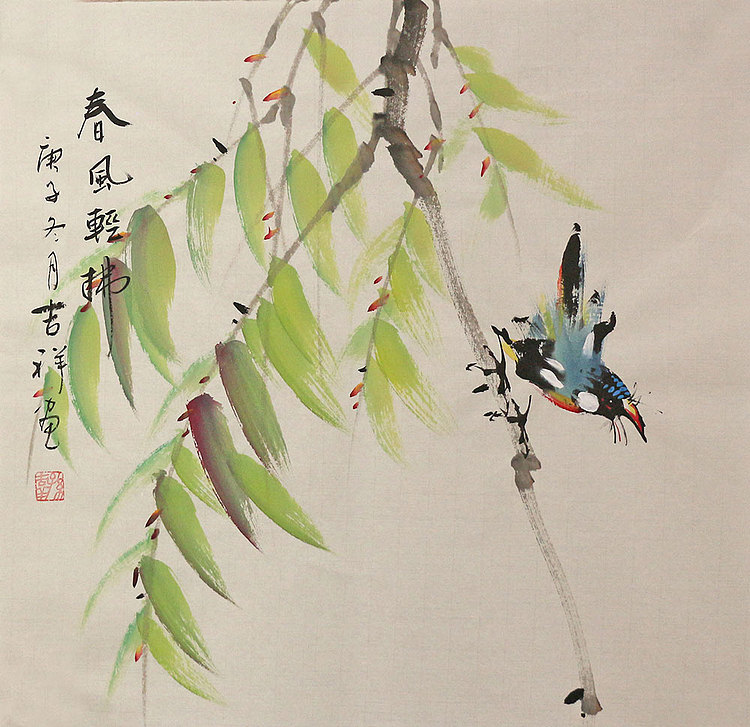 春風輕拂
庚子冬月吉祥画